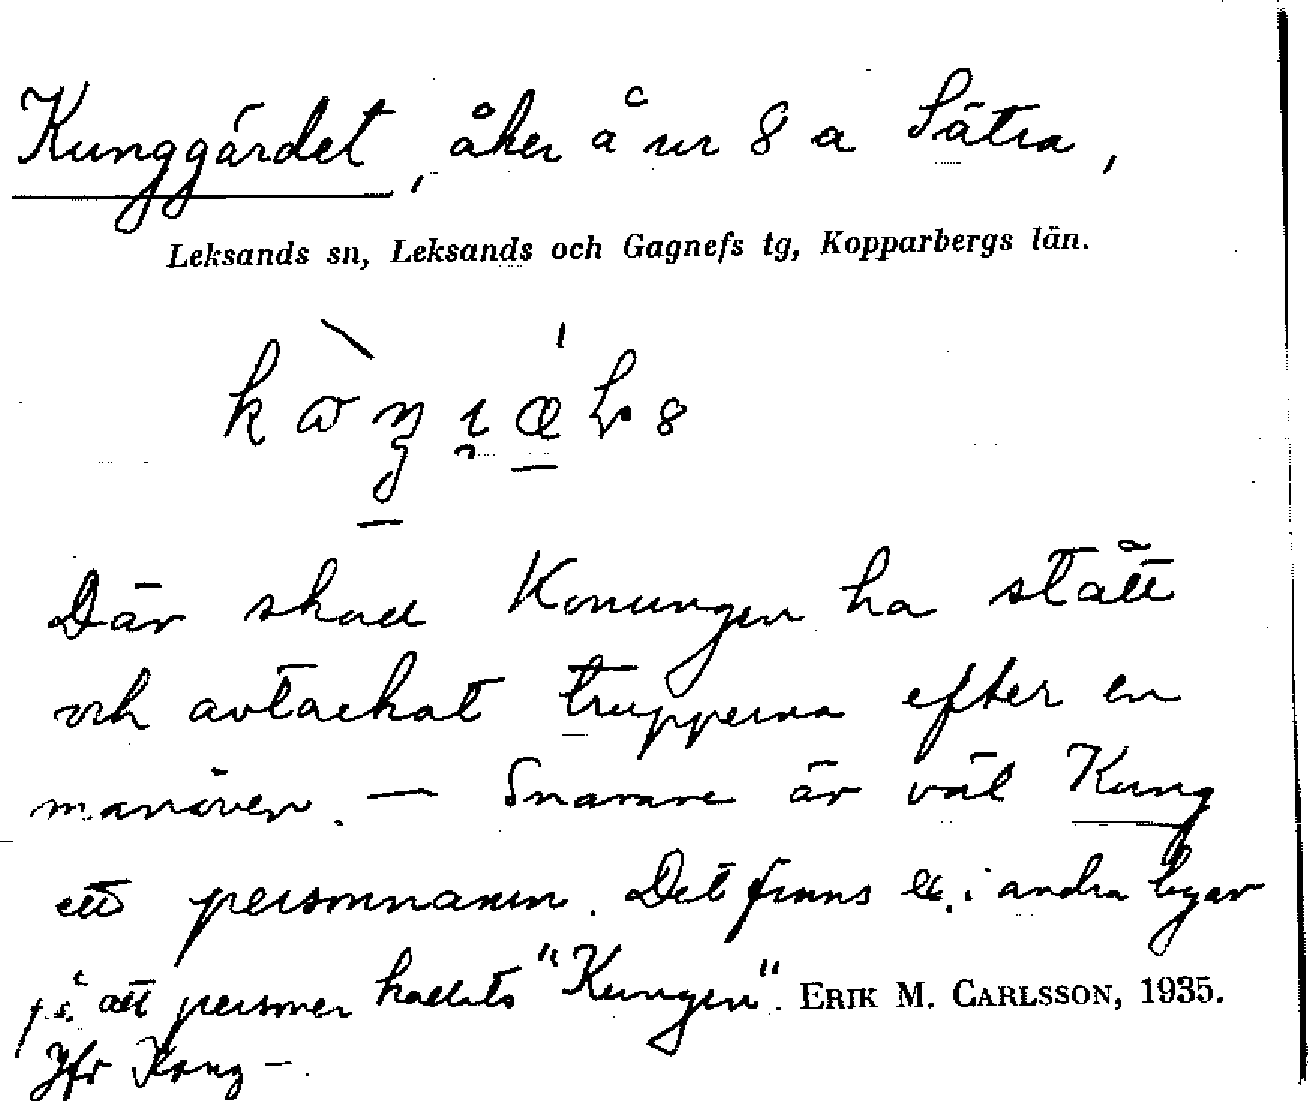 Kunggärdet, åker å nr 8 a Sätra,
Leksands sn, Leksands och Gagnefs tg, Kopparbergs län.
Där skall Konungen ha stått
och avtackat trupperna efter en
manöver. — Snarare är väl Kung
ett personnamn. Det finns ex. i andra byar
på att personer kallats "Kungen". ERIK M. CARLSSON, 1935.
Jfr Kong -.